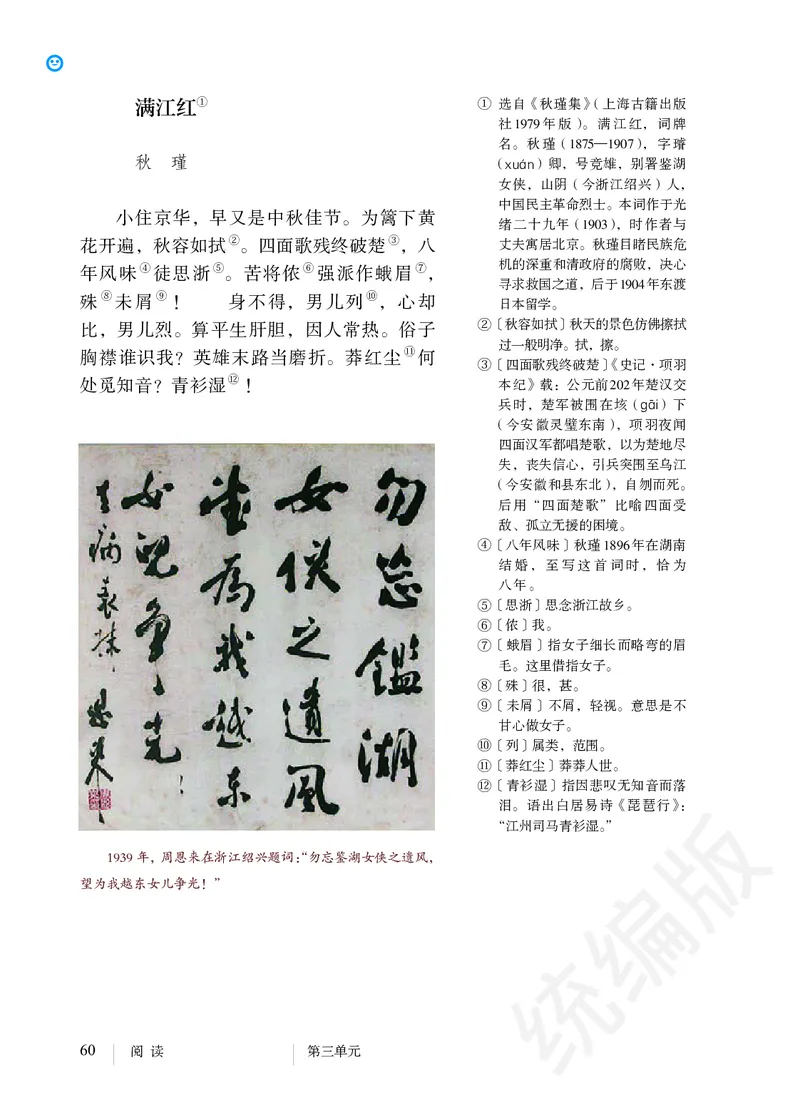 满江红①
秋 瑾
小住京华，早又是中秋佳节。为篱下黄
花开遍，秋容如拭②。四面歌残终破楚③，八
年风味④徒思浙⑤。苦将侬⑥强派作蛾眉⑦，
殊⑧未屑⑨！ 身不得，男儿列⑩，心却
比，男儿烈。算平生肝胆，因人常热。俗子
胸襟谁识我？英雄末路当磨折。莽红尘⑪何
处觅知音？青衫湿⑫！
勿忘鉴湖
女侠之遗风
望为我越东
女儿争光！
去病表妹
恩来
1939年，周恩来在浙江绍兴题词：“勿忘鉴湖女侠之遗风，
望为我越东女儿争光！”
① 选自《秋瑾集》（上海古籍出版
社1979年版）。满江红，词牌
名。秋瑾（1875—1907），字璿
（xuán）卿，号竞雄，别署鉴湖
女侠，山阴（今浙江绍兴）人，
中国民主革命烈士。本词作于光
绪二十九年（1903），时作者与
丈夫寓居北京。秋瑾目睹民族危
机的深重和清政府的腐败，决心
寻求救国之道，后于1904年东渡
日本留学。
②〔秋容如拭〕秋天的景色仿佛擦拭
过一般明净。拭，擦。
③〔四面歌残终破楚〕《史记·项羽
本纪》载：公元前202年楚汉交
兵时，楚军被围在垓（gāi）下
（今安徽灵璧东南），项羽夜闻
四面汉军都唱楚歌，以为楚地尽
失，丧失信心，引兵突围至乌江
（今安徽和县东北），自刎而死。
后用“四面楚歌”比喻四面受
敌、孤立无援的困境。
④〔八年风味〕秋瑾1896年在湖南
结婚，至写这首词时，恰为
八年。
⑤〔思浙〕思念浙江故乡。
⑥〔侬〕我。
⑦〔蛾眉〕指女子细长而略弯的眉
毛。这里借指女子。
⑧〔殊〕很，甚。
⑨〔未屑〕不屑，轻视。意思是不
甘心做女子。
⑩〔列〕属类，范围。
⑪〔莽红尘〕莽莽人世。
⑫〔青衫湿〕指因悲叹无知音而落
泪。语出白居易诗《琵琶行》：
“江州司马青衫湿。”
统编版
60 阅读 第三单元